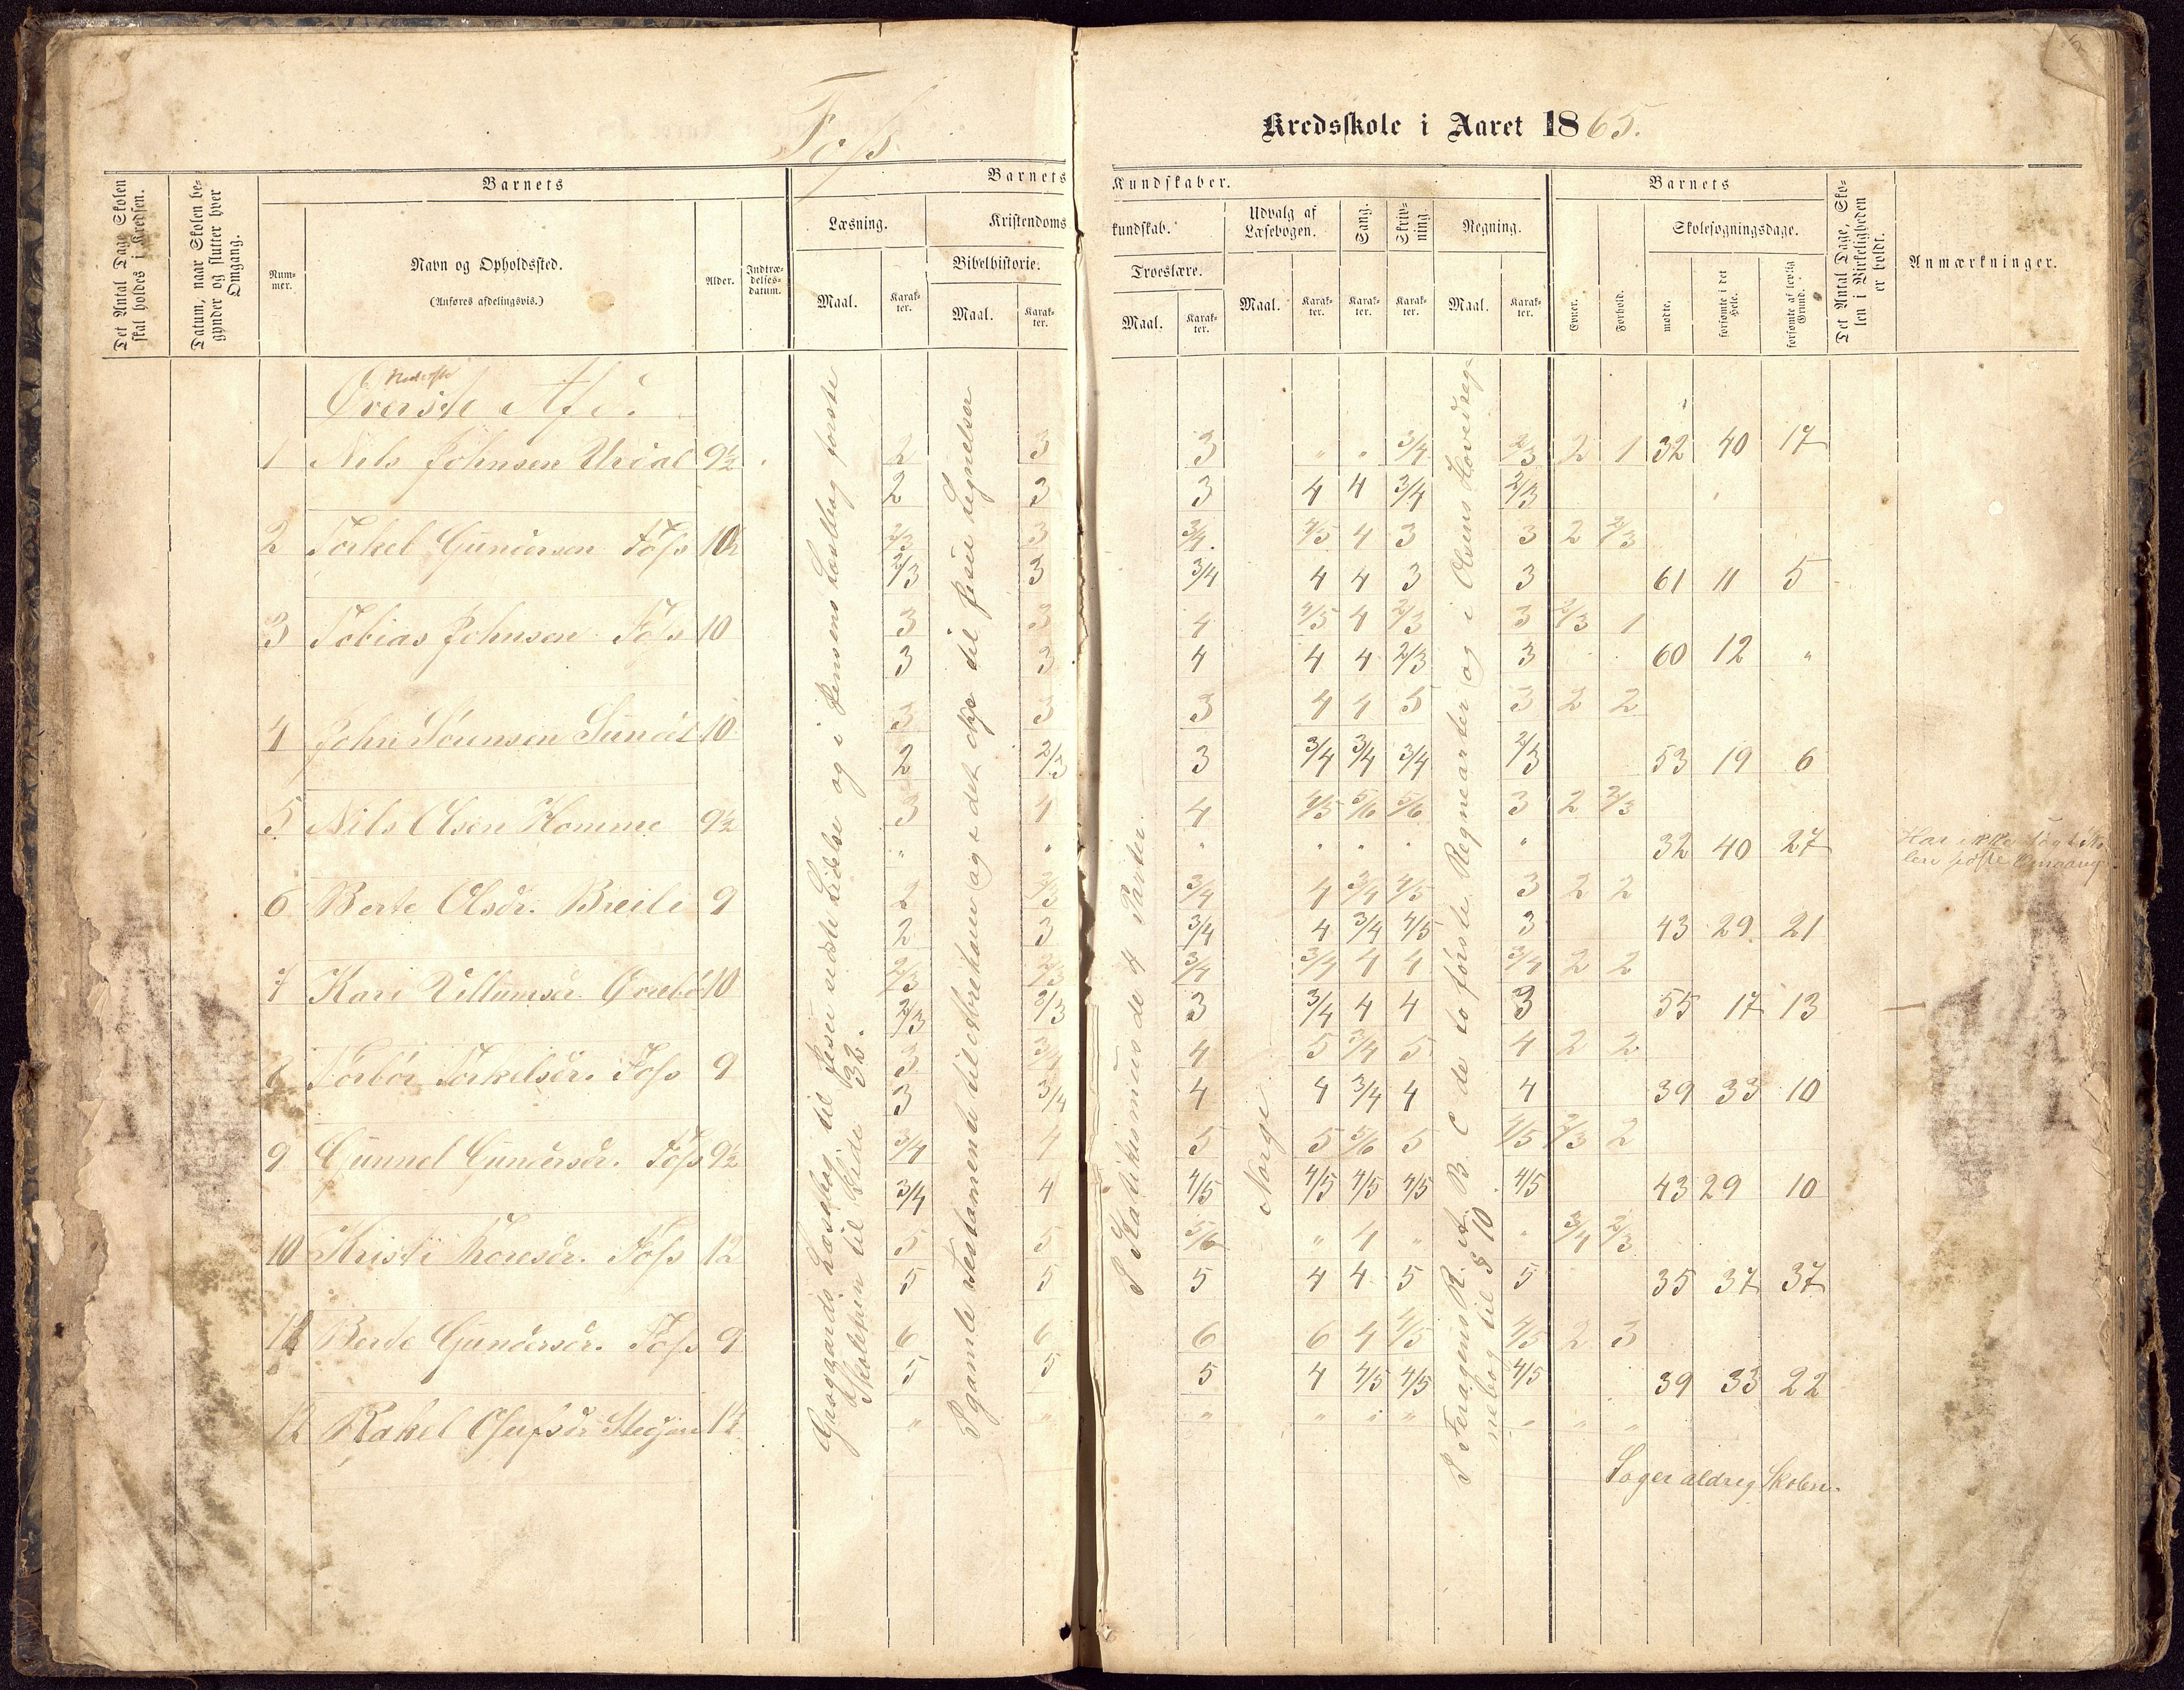 Foss
Kredsskole i Aaret 1865.
Det Antal Dage Skolen skal holdes i Kredsen.
Datum, naar Skolen begynder og slutter hver Omgang.
Barnets
Nummer.
Navn og Opholdssted.
(Anføres afdelingsvis.)
Alder.
Indtrædelsesdatum.
Barnets Kundskaber.
Læsning.
Maal.
Karakter.
Kristendomskundskab.
Bibelhistorie.
Maal.
Karakter.
Troeslære.
Maal.
Karakter.
Udvalg af Læsebogen.
Maal.
Karakter.
Sang.
Karakter.
Skrivning.
Karakter.
Regning.
Maal.
Karakter.
Barnets
Evner.
Forhold.
Skolesøgningsdage.
mødte.
forsømte i det Hele.
forsømte af lovlig Grund.
Det Antal Dage, Skolen i Virkeligheden er holdt.
Anmærkninger.
Nederste
Øverste Afd.
1 Nils Johnsen Urdal 9½ 2 3 3 " " 3/4 2/3 2 1 32 40 17
2 3 3 4 4 3/4 2/3
2 Torkel Gundersen Foss 10½ 2/3 3 3/4 4/5 4 3 3 2 2/3
2/3 3 3/4 4 4 3 3 61 11 5
3 Tobias Johnsen Foss 10 3 3 4 4/5 4 2/3 3 2/3 1
3 3 4 4 4 2/3 3 60 12 "
4 John Sørensen Sundet 10 3 3 3 4 4 5 3 2 2
2 2/3 3 3/4 3/4 3/4 2/3 53 19 6
5 Nils Olsen Homme 9½ 3 4 4 4/5 5/6 5/6 3 2 2/3
" " " " " " " 32 40 27
Har ikke søgt Skolen sidste Omgang
6 Berte Olsdr. Breili 9 2 2/3 3/4 4 3/4 4/5 3 2 2
2 3 3/4 4 3/4 4/5 3 43 29 21
7 Kari Villumsdr. Øvrebø 10 2/3 2/3 3/4 3/4 4 4 3/4 2 2
2/3 2/3 3 3/4 4 4 3 55 17 13
8 Torbør Torkelsdr. Foss 9 3 3/4 4 5 3/4 5 4 2 2
3 3/4 4 4 3/4 4 4 39 33 10
9 Gunnel Gundersdr. Foss 9½ 3/4 4 5 5 5/6 5 4/5 2/3 2
3/4 4 4/5 4/5 4/5 4/5 4/5 43 29 10
10 Kristi Thoresdr. Foss 12 5 5 5/6 " 4 " " 3/4 2/3
5 5 5 4 4 5 5 35 37 37
11 Berte Gundersdr. Foss 9 6 6 6 6 4 4/5 4/5 2 3
5 5 5 4 4/5 4/5 4/5 39 33 22
12 Rakel Olufsdr 11½ " " " " " " " " "
Søger aldrig Skolen.
Grøgaards Læsebog til Jesu sidste Lidelse og i Jensens Læsebog første
Skoletrin til Side 32.
I gamle Testamente til Abraham og i det nye til Jesu Lignelser
I Katekismus de 4 Parter.
Norge
I Feragens R. A. B. C de to første Regnearter og i Olsens Hovedregnebog til § 10